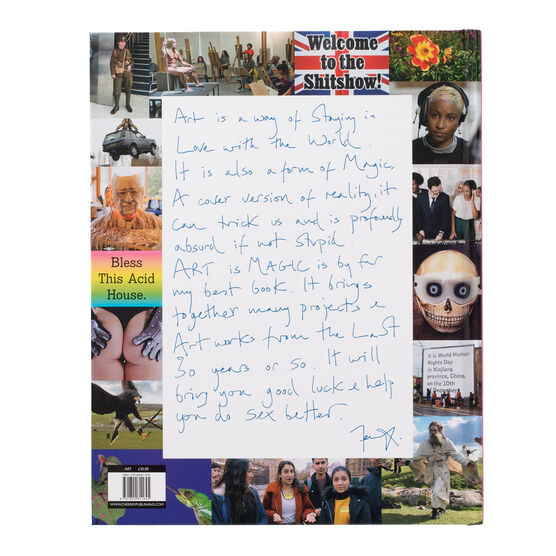 Welcome
to the
Shitshow!
Art is a way of Staying in
Love with the World.
It is also a form of Magic,
A cover version of reality, it
can trick us and is profoundly
absurd if not stupid.
ART is MAGIC is by far
my best book. It brings
together many projects &
Art works from the Last
30 years or so. It will
bring you good luck & help
you do sex better.
Bless
This Acid
House.
It is World Human
Rights Day
in Xinjiang
province, China,
on the 10th
December
ART £30.00
WWW.CHEERIOPUBLISHING.COM